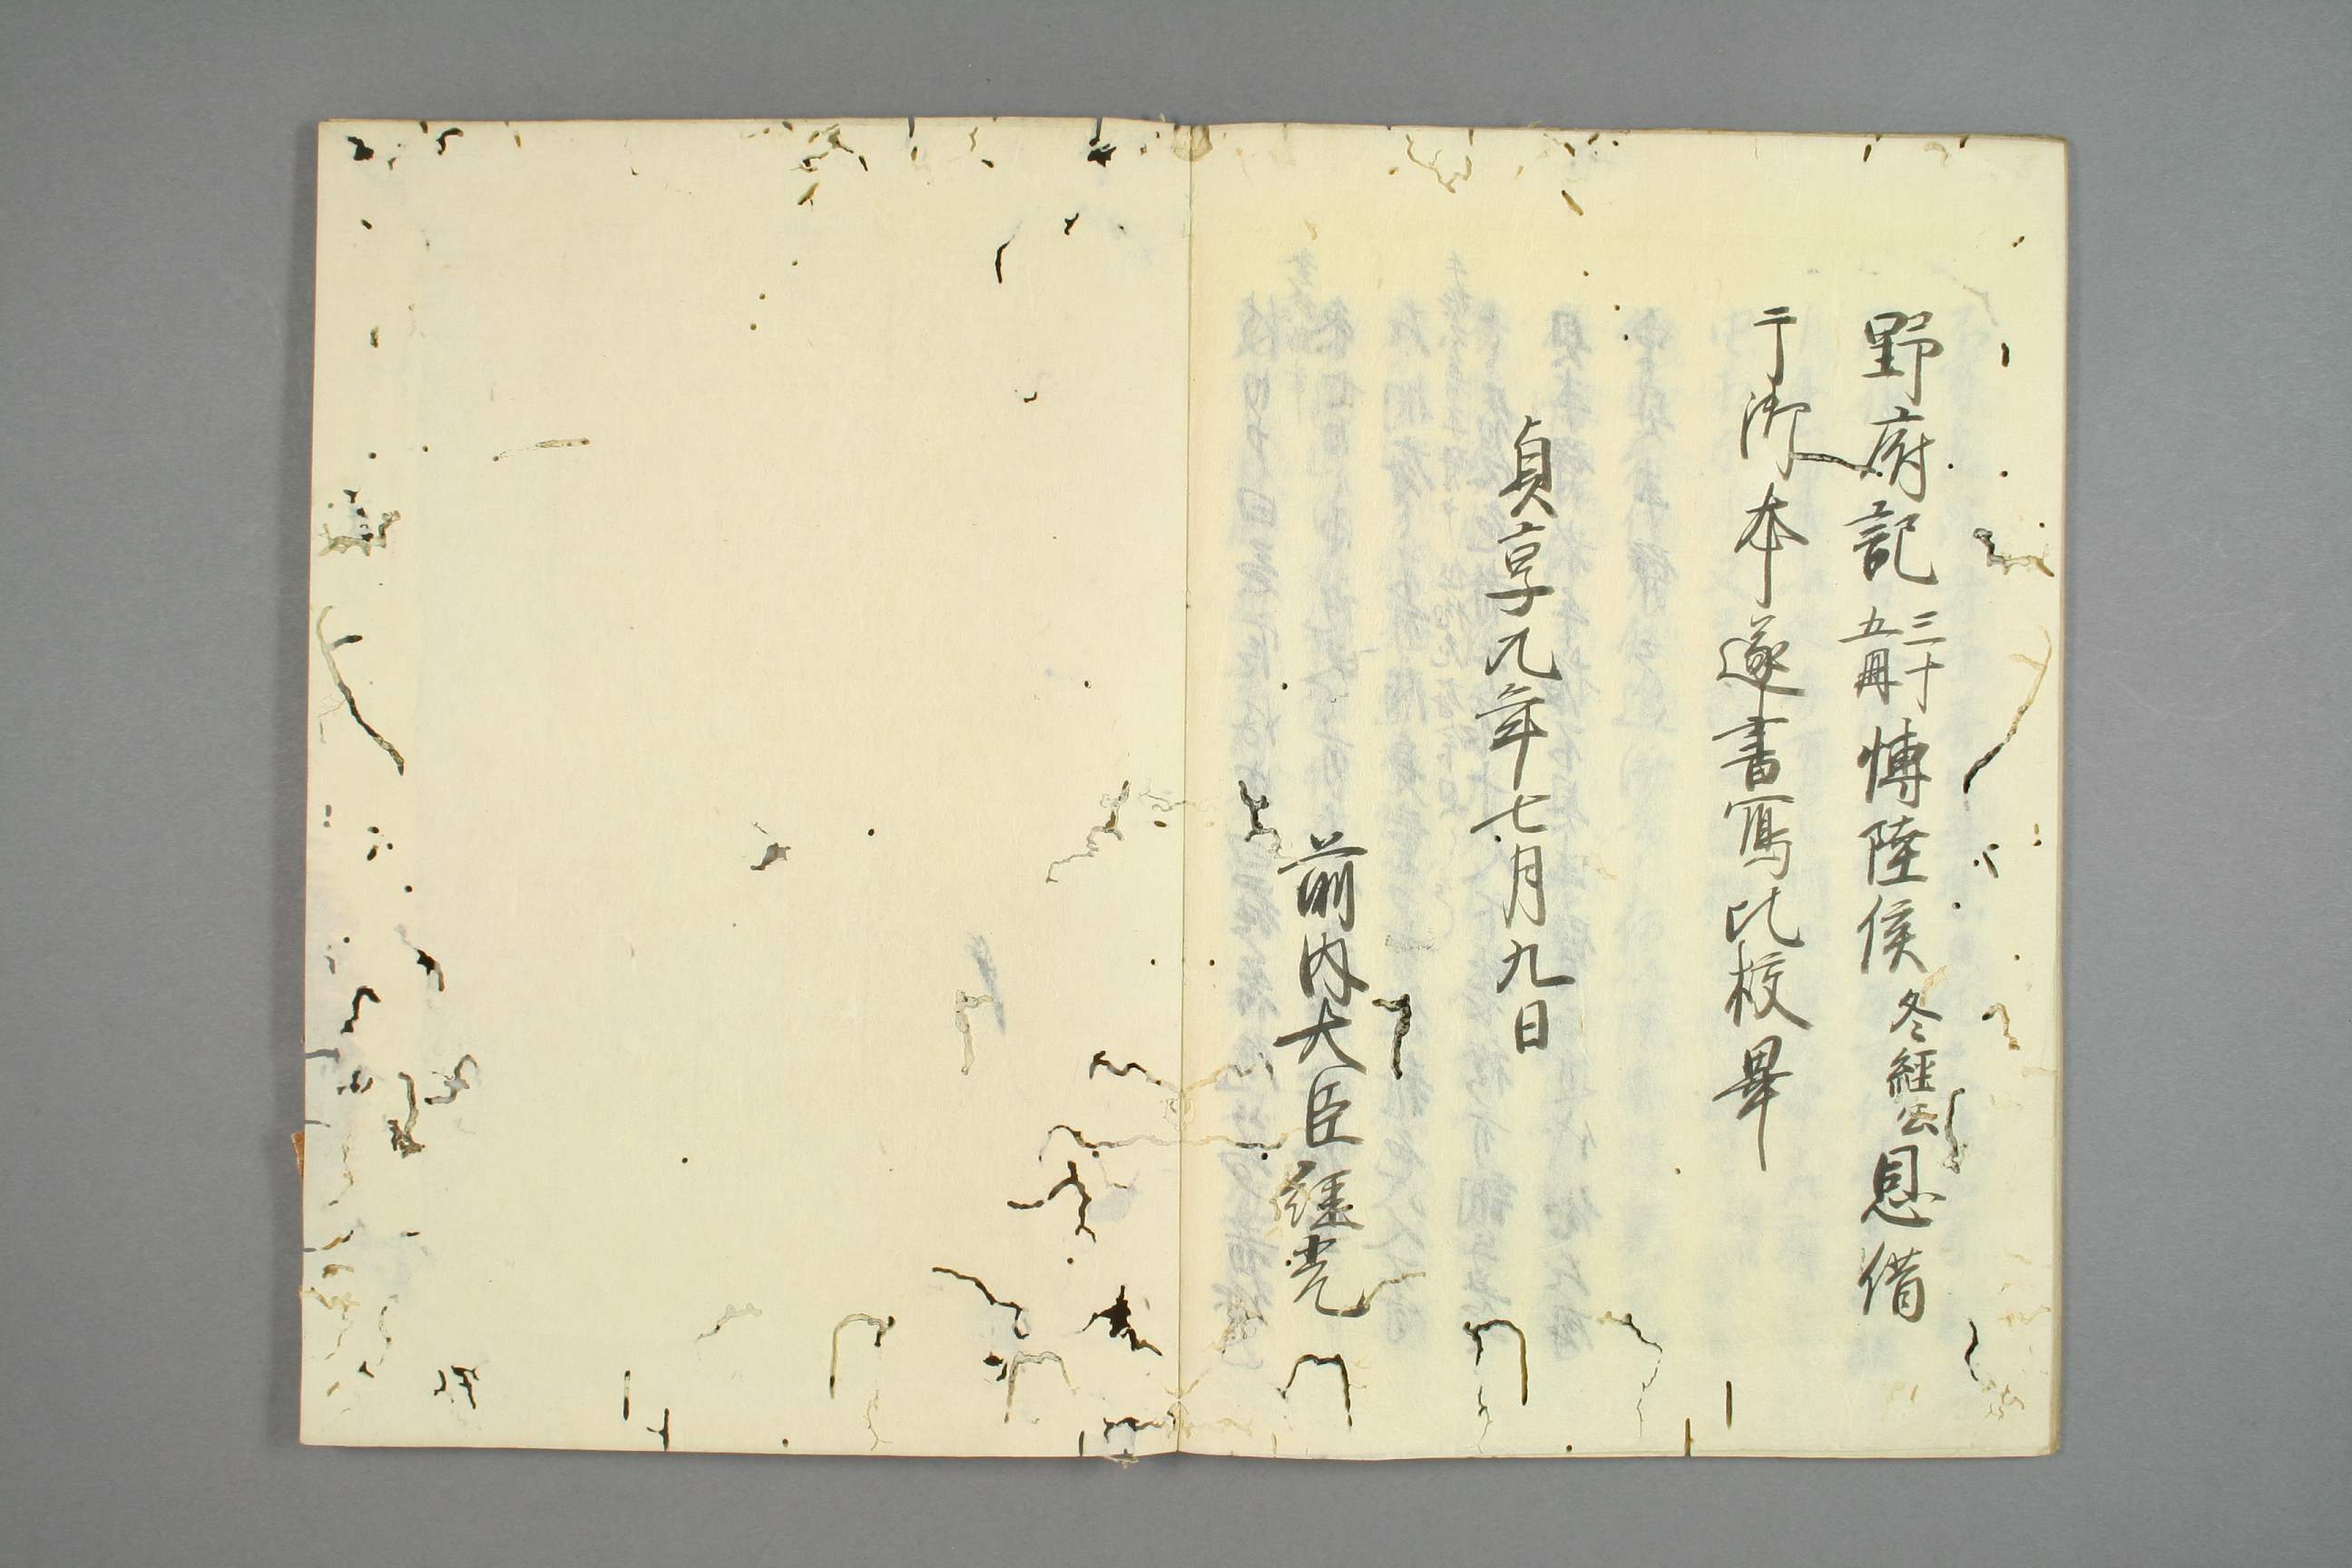 野府記三十五冊愽陸侯冬經公恩借
于御本遂書寫比校畢
貞享元年七月九日
前内大臣經光